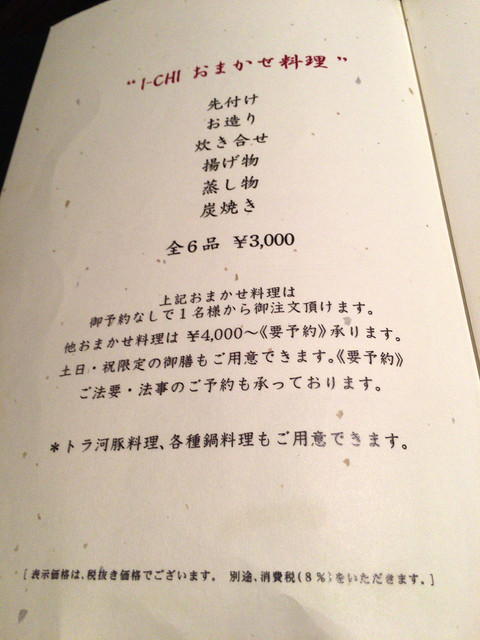 “I-CHI おまかせ料理”
先付け
お造り
炊き合せ
揚げ物
蒸し物
炭焼き
全６品 ￥3,000
上記おまかせ料理は
御予約なしで１名様から御注文頂けます。
他おまかせ料理は ￥4,000〜《要予約》承ります。
土日・祝限定の御膳もご用意できます。《要予約》
ご法要・法事のご予約も承っております。
＊トラ河豚料理、各種鍋料理もご用意できます。
[ 表示価格は、税抜き価格でございます。 別途、消費税(8％)をいただきます。]